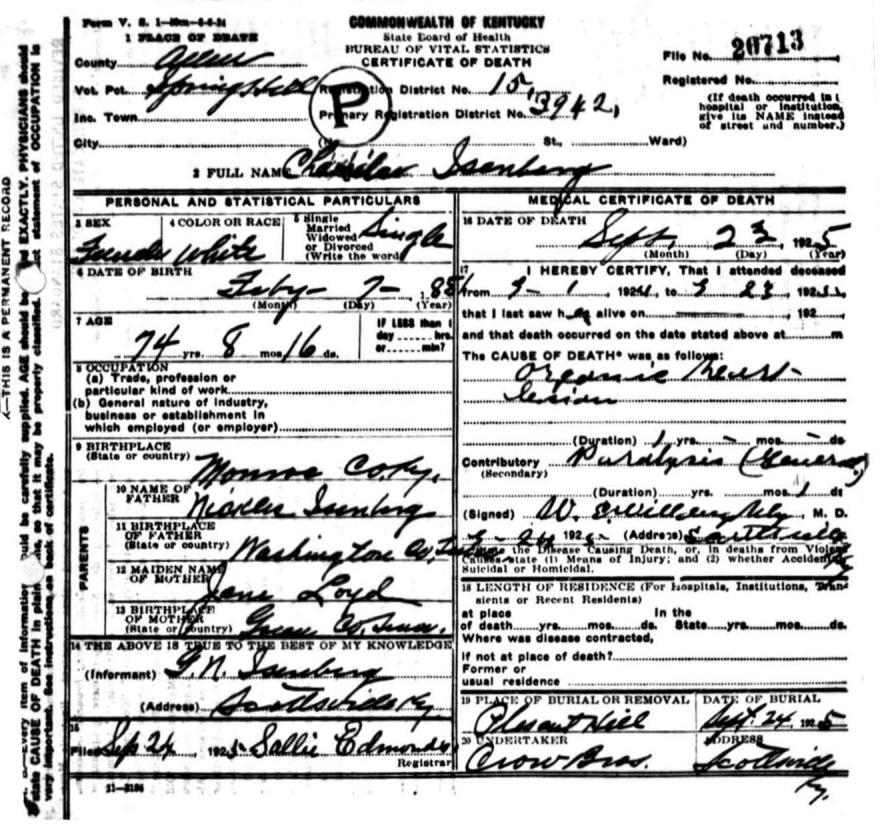 Form V. S. 1-
1 PLACE OF DEATH
COMMONWEALTH OF KENTUCKY
State Board of Health
BUREAU OF VITAL STATISTICS
CERTIFICATE OF DEATH
File No. 20713
County Allen
Vot. Pct. Spring Hill
Registration District No. 15,
Registered No.
Inc. Town
P
Primary Registration District No. 3942,
(If death occurred in a hospital or institution, give its NAME instead of street and number.)
City
(No. St., Ward)
2 FULL NAME Isenberg
PERSONAL AND STATISTICAL PARTICULARS
3 SEX
4 COLOR OR RACE White
5 Single Married Widowed or Divorced (Write the word) Single
6 DATE OF BIRTH
Feby - 7 -
(Month) (Day) (Year)
7 AGE
74 yrs. 8 mos. 16 ds.
IF LESS than 1 day ... hrs. or ... min?
8 OCCUPATION
(a) Trade, profession or particular kind of work
(b) General nature of industry, business or establishment in which employed (or employer)
9 BIRTHPLACE
(State or country) Monroe Co. Ky.
PARENTS
10 NAME OF FATHER Isenberg
11 BIRTHPLACE OF FATHER
(State or country) Washington Co,
12 MAIDEN NAME OF MOTHER Jane Loyd
13 BIRTHPLACE OF MOTHER
(State or country) Green Co.
14 THE ABOVE IS TRUE TO THE BEST OF MY KNOWLEDGE
(Informant) G. N. Isenberg
(Address) Scottsville Ky.
15
Filed Sep 24 1925 Sallie Edmonds
Registrar
11-3184
MEDICAL CERTIFICATE OF DEATH
16 DATE OF DEATH
Sept. 23, 1925
(Month) (Day) (Year)
17 I HEREBY CERTIFY, That I attended deceased
from 9-1, 192 to 9 23, 192
that I last saw h alive on 192
and that death occurred on the date stated above at m
The CAUSE OF DEATH* was as follows:
Organic heart
lesion
(Duration) 1 yrs. - mos. - ds
Contributory Paralysis (General)
(Secondary)
(Duration) yrs. mos. 1 ds
(Signed) W. M. D.
192 (Address) Scottsville
Ky
the Disease Causing Death, or, in deaths from Violent
Causes state (1) Means of Injury; and (2) whether Accidental,
Suicidal or Homicidal.
18 LENGTH OF RESIDENCE (For Hospitals, Institutions, Transients or Recent Residents)
at place of death yrs. mos. ds. In the State yrs. mos. ds.
Where was disease contracted,
if not at place of death?
Former or usual residence
19 PLACE OF BURIAL OR REMOVAL Plesant Hill
DATE OF BURIAL Sept. 24, 1925
20 UNDERTAKER Crow Bros.
ADDRESS Scottsville
Ky.
THIS IS A PERMANENT RECORD
Every item of information should be carefully supplied. AGE should be stated EXACTLY. PHYSICIANS should
state CAUSE OF DEATH in plain terms, so that it may be properly classified. Exact statement of OCCUPATION is
very important. See instructions on back of certificate.